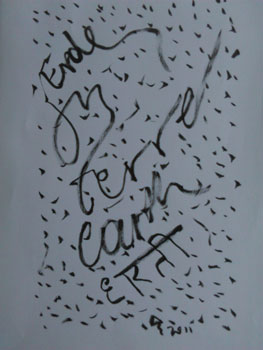 Erde
terre
earth
धरती
2011